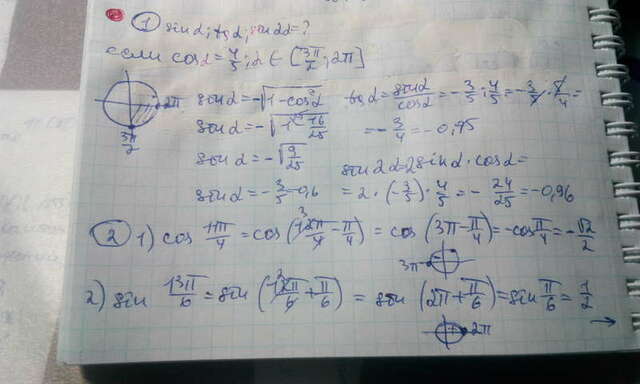 ① sin α; tg α; sin 2α = ?
если cos α = 4/5; α ∈ [3π/2; 2π]
2π
3π/2
sin α = -√(1 - cos²α)
sin α = -√(1 - 16/25)
sin α = -√(9/25)
sin α = -3/5 = -0,6
tg α = sin α / cos α = -3/5 : 4/5 = -3/5 · 5/4 =
= -3/4 = -0,75
sin 2α = 2 sin α · cos α =
= 2 · (-3/5) · 4/5 = -24/25 = -0,96
② 1) cos 11π/4 = cos (12π/4 - π/4) = cos (3π - π/4) = -cos π/4 = -√2/2
3π
2) sin 13π/6 = sin (12π/6 + π/6) = sin (2π + π/6) = sin π/6 = 1/2
2π
→